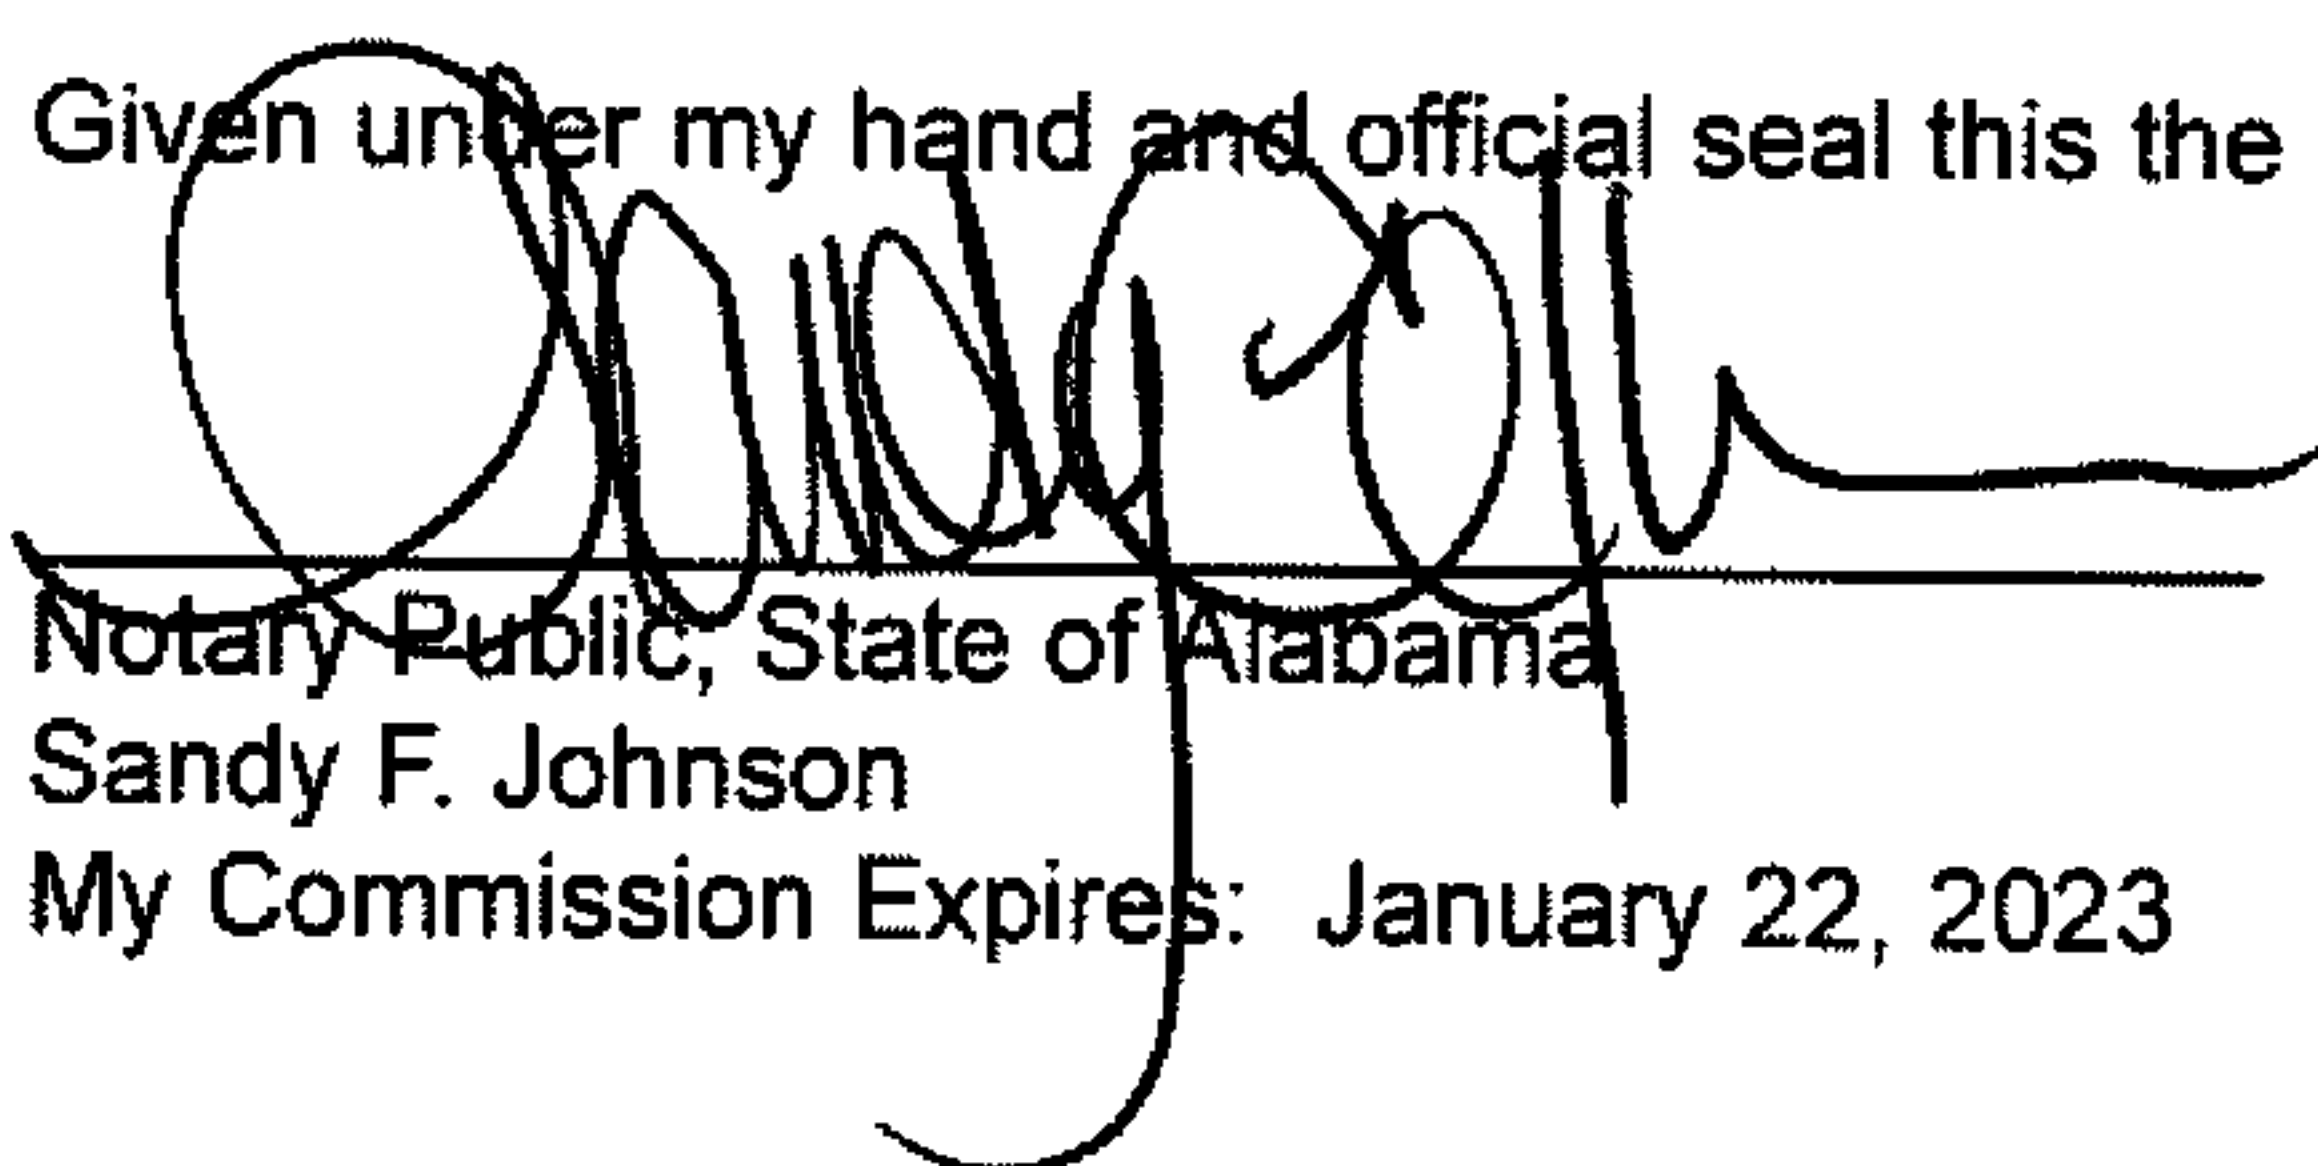 Given under my hand and official seal this the
Notary Public, State of Alabama
Sandy F. Johnson
My Commission Expires: January 22, 2023